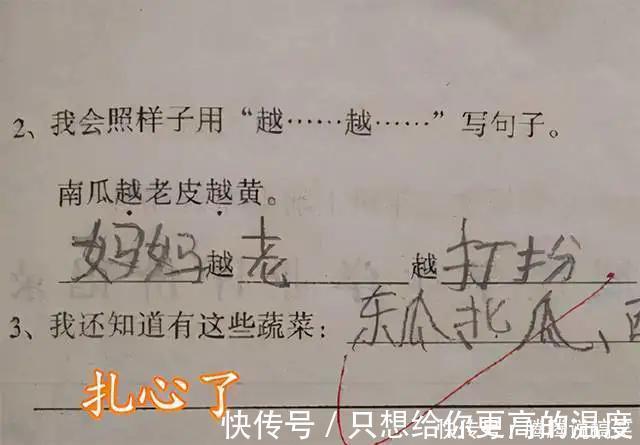 2、我会照样子用“越……越……”写句子。
南瓜越老皮越黄。
妈妈越老越打扮
3、我还知道有这些蔬菜：东瓜、北瓜、西
扎心了
快传号／只想给你更高的温度
快传号／腾腾说搞笑